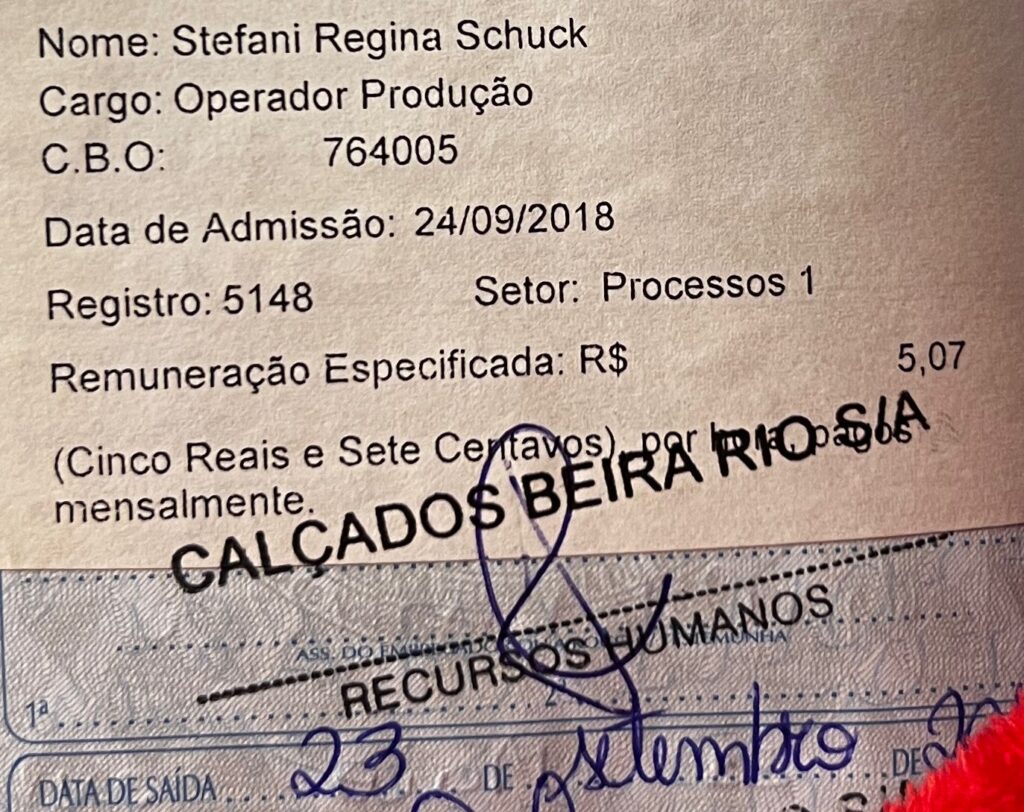 Nome: Stefani Regina Schuck
Cargo: Operador Produção
C.B.O: 764005
Data de Admissão: 24/09/2018
Registro: 5148 Setor: Processos 1
Remuneração Especificada: R$ 5,07
(Cinco Reais e Sete Centavos), por hora, pagos
mensalmente.
CALÇADOS BEIRA RIO S/A
ASS. DO
RECURSOS HUMANOS
1ª 2ª
DATA DE SAÍDA 23 DE setembro DE